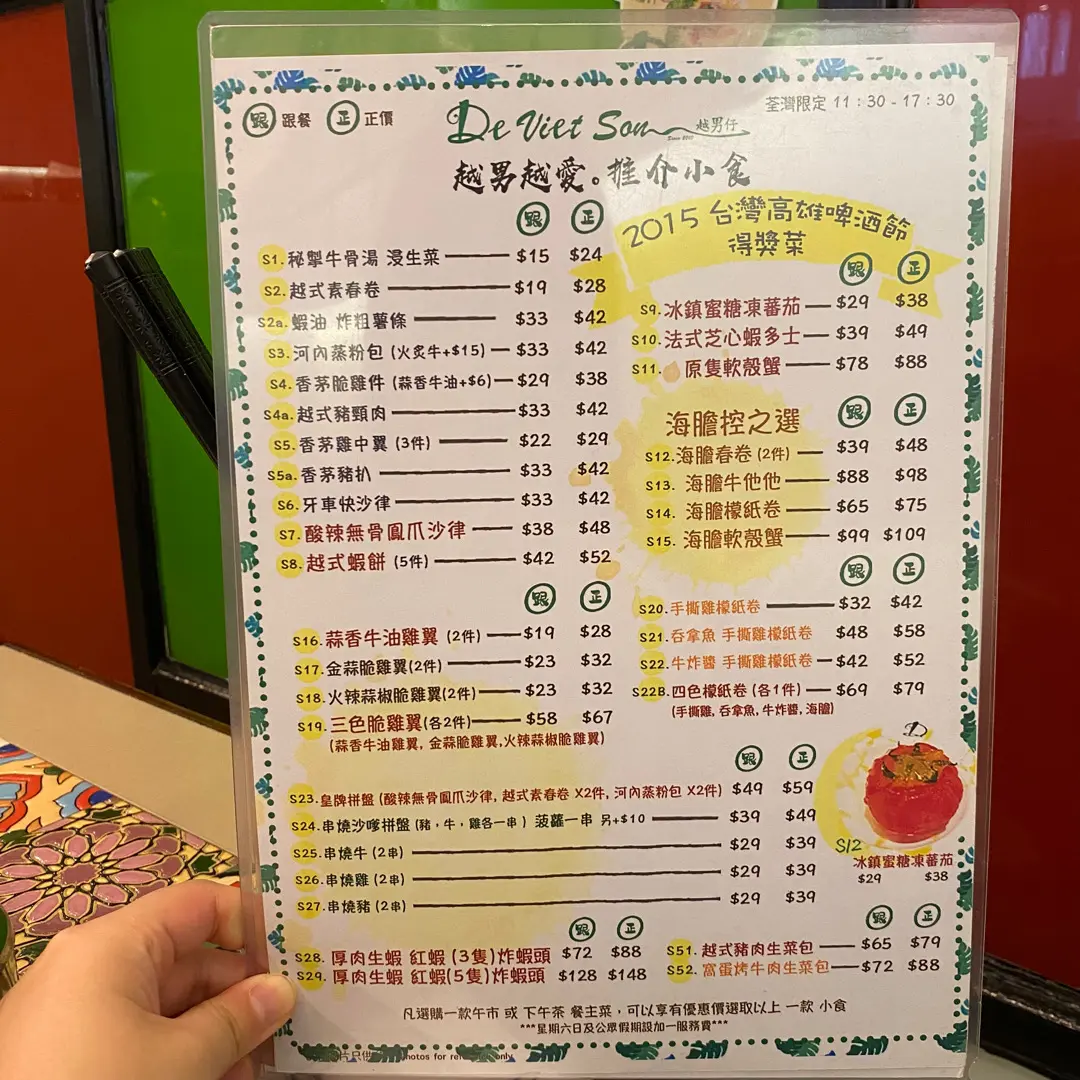 跟 跟餐 正 正價
De Viet Son 越男仔
荃灣限定 11:30-17:30
越男越愛。推介小食
跟 正
S1. 秘製牛骨湯 浸生菜 $15 $24
S2. 越式素春卷 $19 $28
S2a. 蝦油 炸粗薯條 $33 $42
S3. 河內蒸粉包 (火炙牛+$15) $33 $42
S4. 香茅脆雞件 (蒜香牛油+$6) $29 $38
S4a. 越式豬頸肉 $33 $42
S5. 香茅雞中翼 (3件) $22 $29
S5a. 香茅豬扒 $33 $42
S6. 牙車快沙律 $33 $42
S7. 酸辣無骨鳳爪沙律 $38 $48
S8. 越式蝦餅 (5件) $42 $52
跟 正
S16. 蒜香牛油雞翼 (2件) $19 $28
S17. 金蒜脆雞翼(2件) $23 $32
S18. 火辣蒜椒脆雞翼(2件) $23 $32
S19. 三色脆雞翼(各2件) $58 $67
(蒜香牛油雞翼, 金蒜脆雞翼,火辣蒜椒脆雞翼)
2015 台灣高雄啤酒節
得獎菜
跟 正
S9. 冰鎮蜜糖凍蕃茄 $29 $38
S10. 法式芝心蝦多士 $39 $49
S11. 原隻軟殼蟹 $78 $88
海膽控之選
跟 正
S12. 海膽春卷 (2件) $39 $48
S13. 海膽牛他他 $88 $98
S14. 海膽檬紙卷 $65 $75
S15. 海膽軟殼蟹 $99 $109
跟 正
S20. 手撕雞檬紙卷 $32 $42
S21. 吞拿魚 手撕雞檬紙卷 $48 $58
S22. 牛炸醬 手撕雞檬紙卷 $42 $52
S22B. 四色檬紙卷 (各1件) $69 $79
(手撕雞, 吞拿魚, 牛炸醬, 海膽)
跟 正
S23. 皇牌拼盤 (酸辣無骨鳳爪沙律, 越式素春卷 X2件, 河內蒸粉包 X2件) $49 $59
S24. 串燒沙嗲拼盤 (豬，牛，雞各一串) 菠蘿一串 另+$10 $39 $49
S25. 串燒牛 (2串) $29 $39
S26. 串燒雞 (2串) $29 $39
S27. 串燒豬 (2串) $29 $39
D
S12
冰鎮蜜糖凍蕃茄
$29 $38
跟 正
S28. 厚肉生蝦 紅蝦 (3隻)炸蝦頭 $72 $88
S29. 厚肉生蝦 紅蝦(5隻)炸蝦頭 $128 $148
跟 正
S51. 越式豬肉生菜包 $65 $79
S52. 富蛋烤牛肉生菜包 $72 $88
凡選購一款午市 或 下午茶 餐主菜，可以享有優惠價選取以上 一款 小食
***星期六日及公眾假期設加一服務費***
片只供 photos for reference only